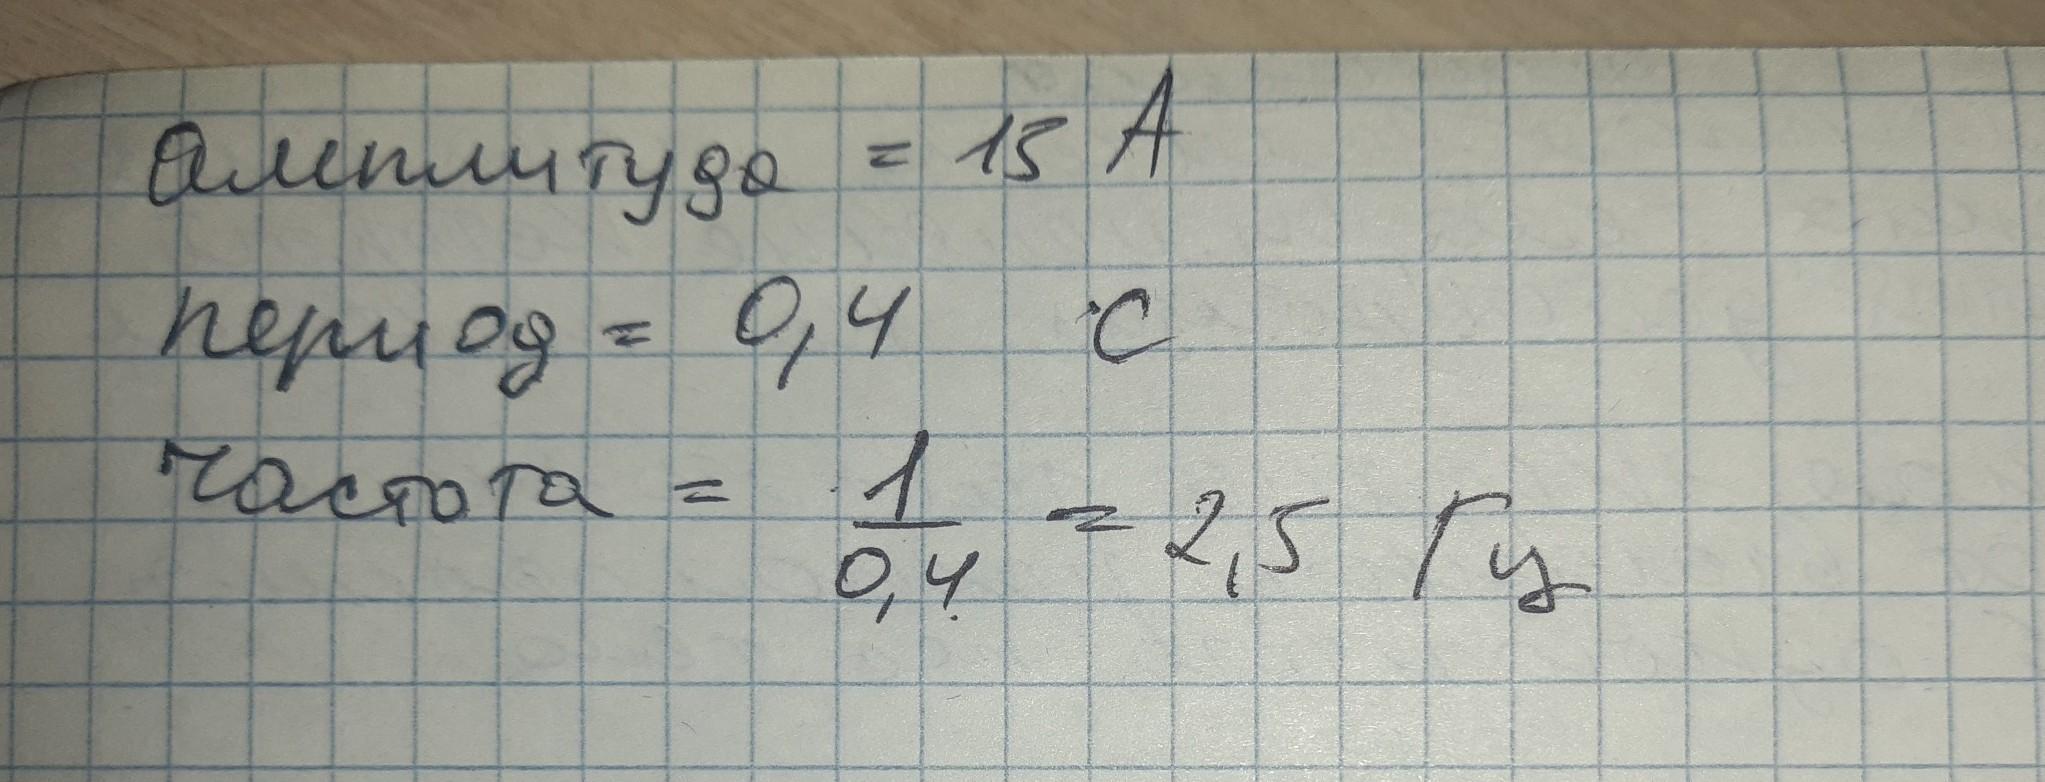 амплитуда = 15 А
период = 0,4 с
частота = 1/0,4 = 2,5 Гц